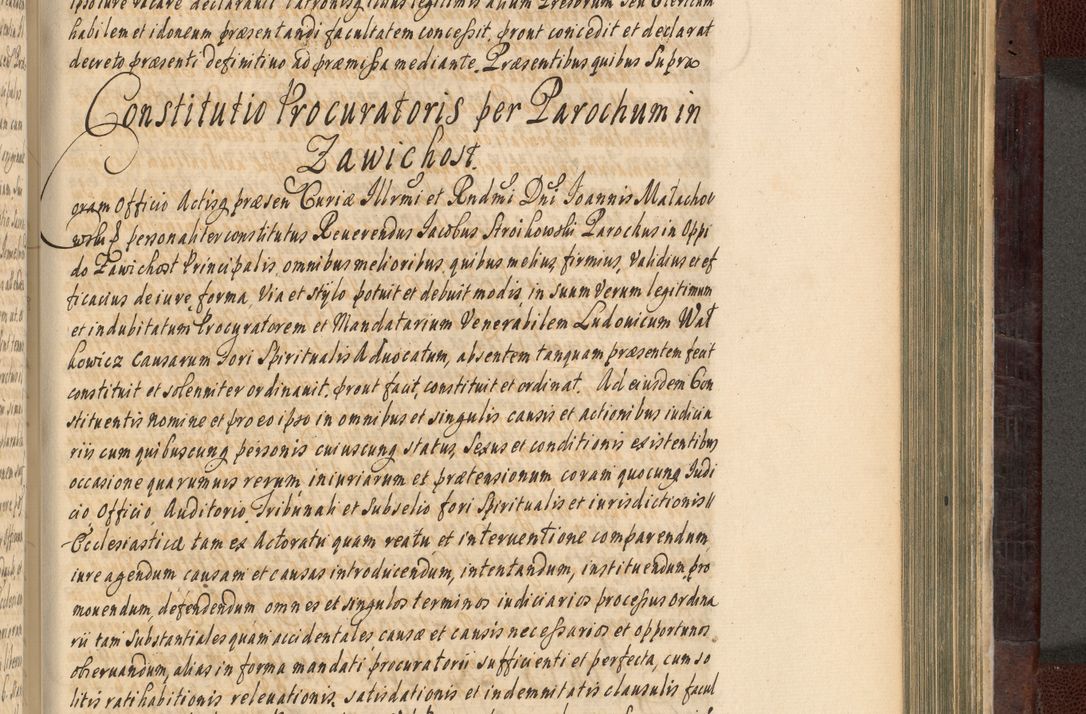 habilem et idoneum præsentandi facultatem concessit, prout concedit et declarat
decreto præsenti definitiuo ad præmissa mediante. Præsentibus quibus Supra
Constitutio Procuratoris per Parochum in
Zawichost.
Coram Officio Actisq præsen Curiæ Illrmi et Rndmi Dni Joannis Małachow
wski personaliter constitutus Reuerendus Jacobus Stroikowski Parochus in Oppi
do Zawichost Principalis, omnibus melioribus quibus melius, firmius, Validius et ef
ficacius de iure, forma, Via et stylo potuit et debuit modis, in suum Verum legitimum
et indubitatum Procuratorem et Mandatarium Venerabilem Ludouicum Wał
kowicz Causarum Fori Spiritualis Aduocatum, absentem tanquam præsentem fecit
constituit et solenniter ordinauit, prout facit, constituit et ordinat. Ad eiusdem Con
stituentis nomine et pro eo ipso in omnibus et singulis causis et actionibus iudicia
riis cum quibuscunq personis cuiuscunq status, Sexus et conditionis existentibus
occasione quarumuis rerum iniuriarum et prætensionum coram quocunq Judi
cio, Officio, Auditorio, Tribunali et Subselio fori Spiritualis et iurisdictionis
Ecclesiasticæ tam ex Actoratu quam reatu et interuentione comparendum
iure agendum causam et causas introducendum, intentandum, instituendum, pro
mouendum, defendendum omnes et singulos terminos iudiciarios processus ordina
rii tam Substantiales quam accidentales, causæ et causis necessarios et opportunos
obseruandum, alias in forma mandati procuratorii sufficienti et perfecta, cum so
litis ratihabitionis releuationis, satisdationis et indemnitatis clausulis facul